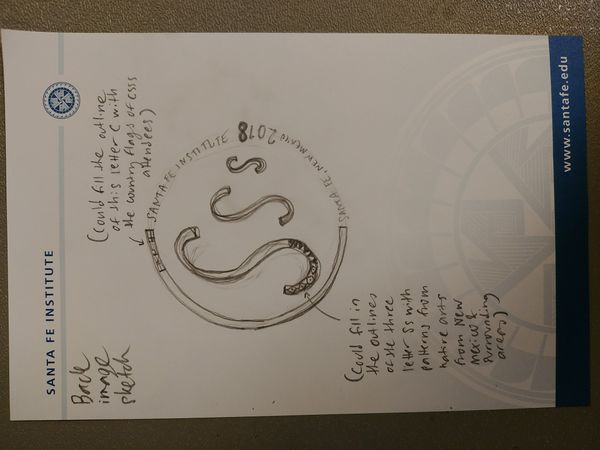 SANTA FE INSTITUTE
www.santafe.edu
Back
image
sketch
(Could fill the outline
of this letter C with
the country flags of CSSS
attendees)
SANTA FE INSTITUTE 2018
SANTA FE, NEW MEXICO
S
S
S
(Could fill in
the outlines
of the three
letter Ss with
patterns from
native arts
from New
Mexico &
surrounding
areas)